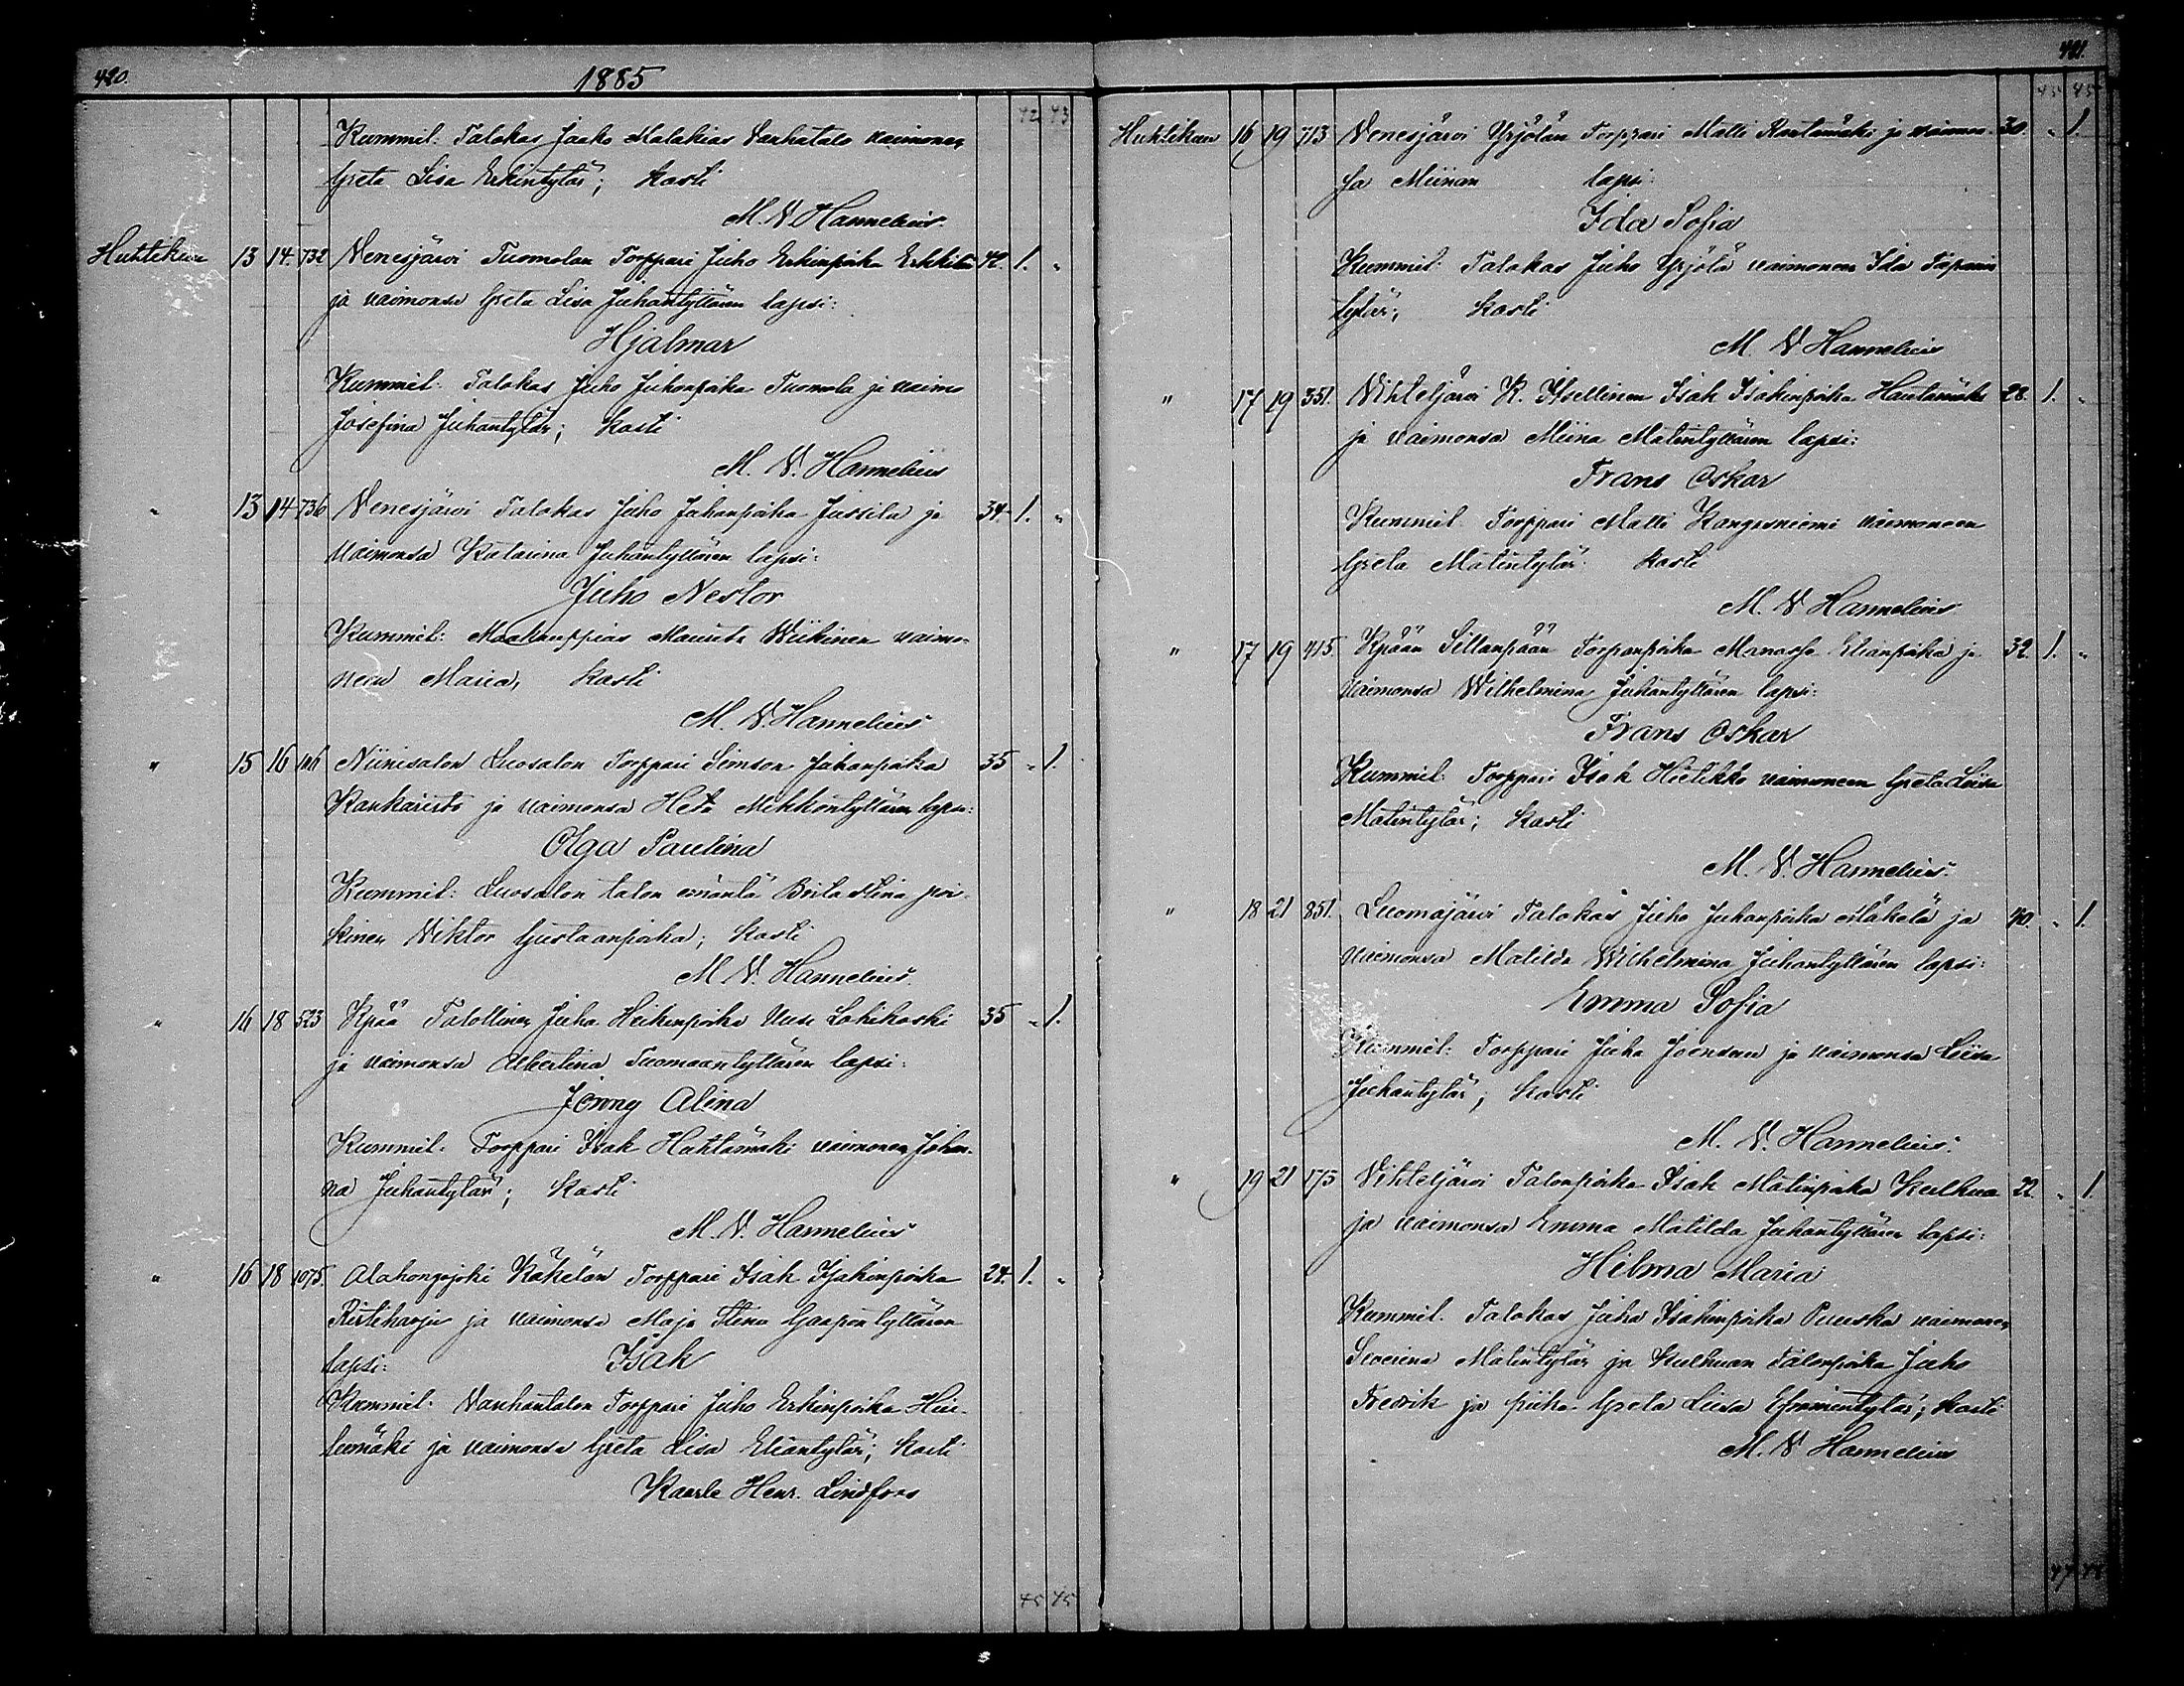 420.
1885
42 43
Kummit: Talokas Jaako Malakias Vanhatalo vaimonen
Greta Lisa Erkintytär; Kasti
M. V. Hannelius.
Huhtikuu 13 14. 732 Venesjärvi Tuomolan Torppari Juho Erkinpoika Erkkilä 42. 1. "
ja vaimonsa Greta Lisa Juhantyttären lapsi:
Hjalmar
Kummit: Talokas Juho Juhonpoika Tuomola ja vaimo
Josefina Juhantytär; Kasti
M. V. Hannelius
" 13 14 736 Venesjärvi Talokas Juho Juhanpoika Jussila ja 34. 1. "
vaimonsa Katarina Juhantyttären lapsi:
Juho Nestor
Kummit: Maakauppias Wiikinen vaimo-
neen Maria, Kasti
M. V. Hannelius
" 15 16 Niinisalon Luosalon Torppari Simson Juhanpoika 35 " 1.
Kankaristo ja vaimonsa Heta Mikkontyttären lapsi:
Olga Paulina
Kummit: Luosalon talon emäntä Berita Stina poi-
kinen Viktor Gustaanpoika; Kasti
M. V. Hannelius.
" 16 18 523 Kpää Talollinen Juha Heikinpoika Uusi Lohikoski 35 " 1.
ja vaimonsa Albertina Tuomaantyttären lapsi:
Jenny Alina
Kummit: Torppari Isak Huhtamäki vaimonen Johan-
na Juhantytär; Kasti
M. V. Hannelius
" 16 18 1075. Alahongojoki Käkelän Torppari Isak Isakinpoika 24. 1. "
Ristiharju ja vaimonsa Maja Stina Gaapontyttären
lapsi: Isak
Kummit: Vanhantalon Torppari Juho Erkinpoika Hie-
ja vaimonsa Greta Lisa Eliantytär; Kasti
Kaarle Henr. Lindfors
45 45
421.
45 45
Huhtikuu 16 19 713 Venesjärvi Yrjölän Torppari Matti Rantamäki ja vaimon- 30. " 1.
sa Miinan lapsi:
Ida Sofia
Kummit: Talokas Juho Yrjölä vaimonen Ida Tapanin
tytär; Kasti
M. V. Hannelius
" 17 19 351. Vihteljärvi K. Itsellinen Isak Isakinpoika Hautamäki 28. 1. "
ja vaimonsa Miina Matintyttären lapsi:
Frans Oskar
Kummit: Torppari Matti Kangasniemi vaimoneen
Greta Matintytär. Kasti
M. V. Hannelius
" 17 19 415. Kpään Sillanpään Torpanpoika Manasse Elianpoika ja 32. 1. "
vaimonsa Wilhelmina Juhantyttären lapsi:
Frans Oskar
Kummit: Torppari Isak Hietikko vaimoneen Greta Liisa
Matintytär; Kasti
M. V. Hannelius.
" 18 21 851. Luomajärvi Talokas Juho Juhanpoika Mäkelä ja 40. " 1.
vaimonsa Matilda Wilhelmina Juhantyttären lapsi:
Emma Sofia
Kummit: Torppari Juha Joensuu ja vaimonsa Liisa
Juhantytär; Kasti
M. V. Hannelius.
" 19 21 175 Vihteljärvi Talonpoika Isak Matinpoika Kulhua 22. " 1.
ja vaimonsa Emma Matilda Juhantyttären lapsi:
Hilma Maria
Kummit. Talokas Juha Isakinpoika Puuska vaimonen
Severina Matintytär ja Kulhuan Talonpoika Juho
Fredrik ja piika Greta Liisa Efraimintytär; Kasti
M. V. Hannelius